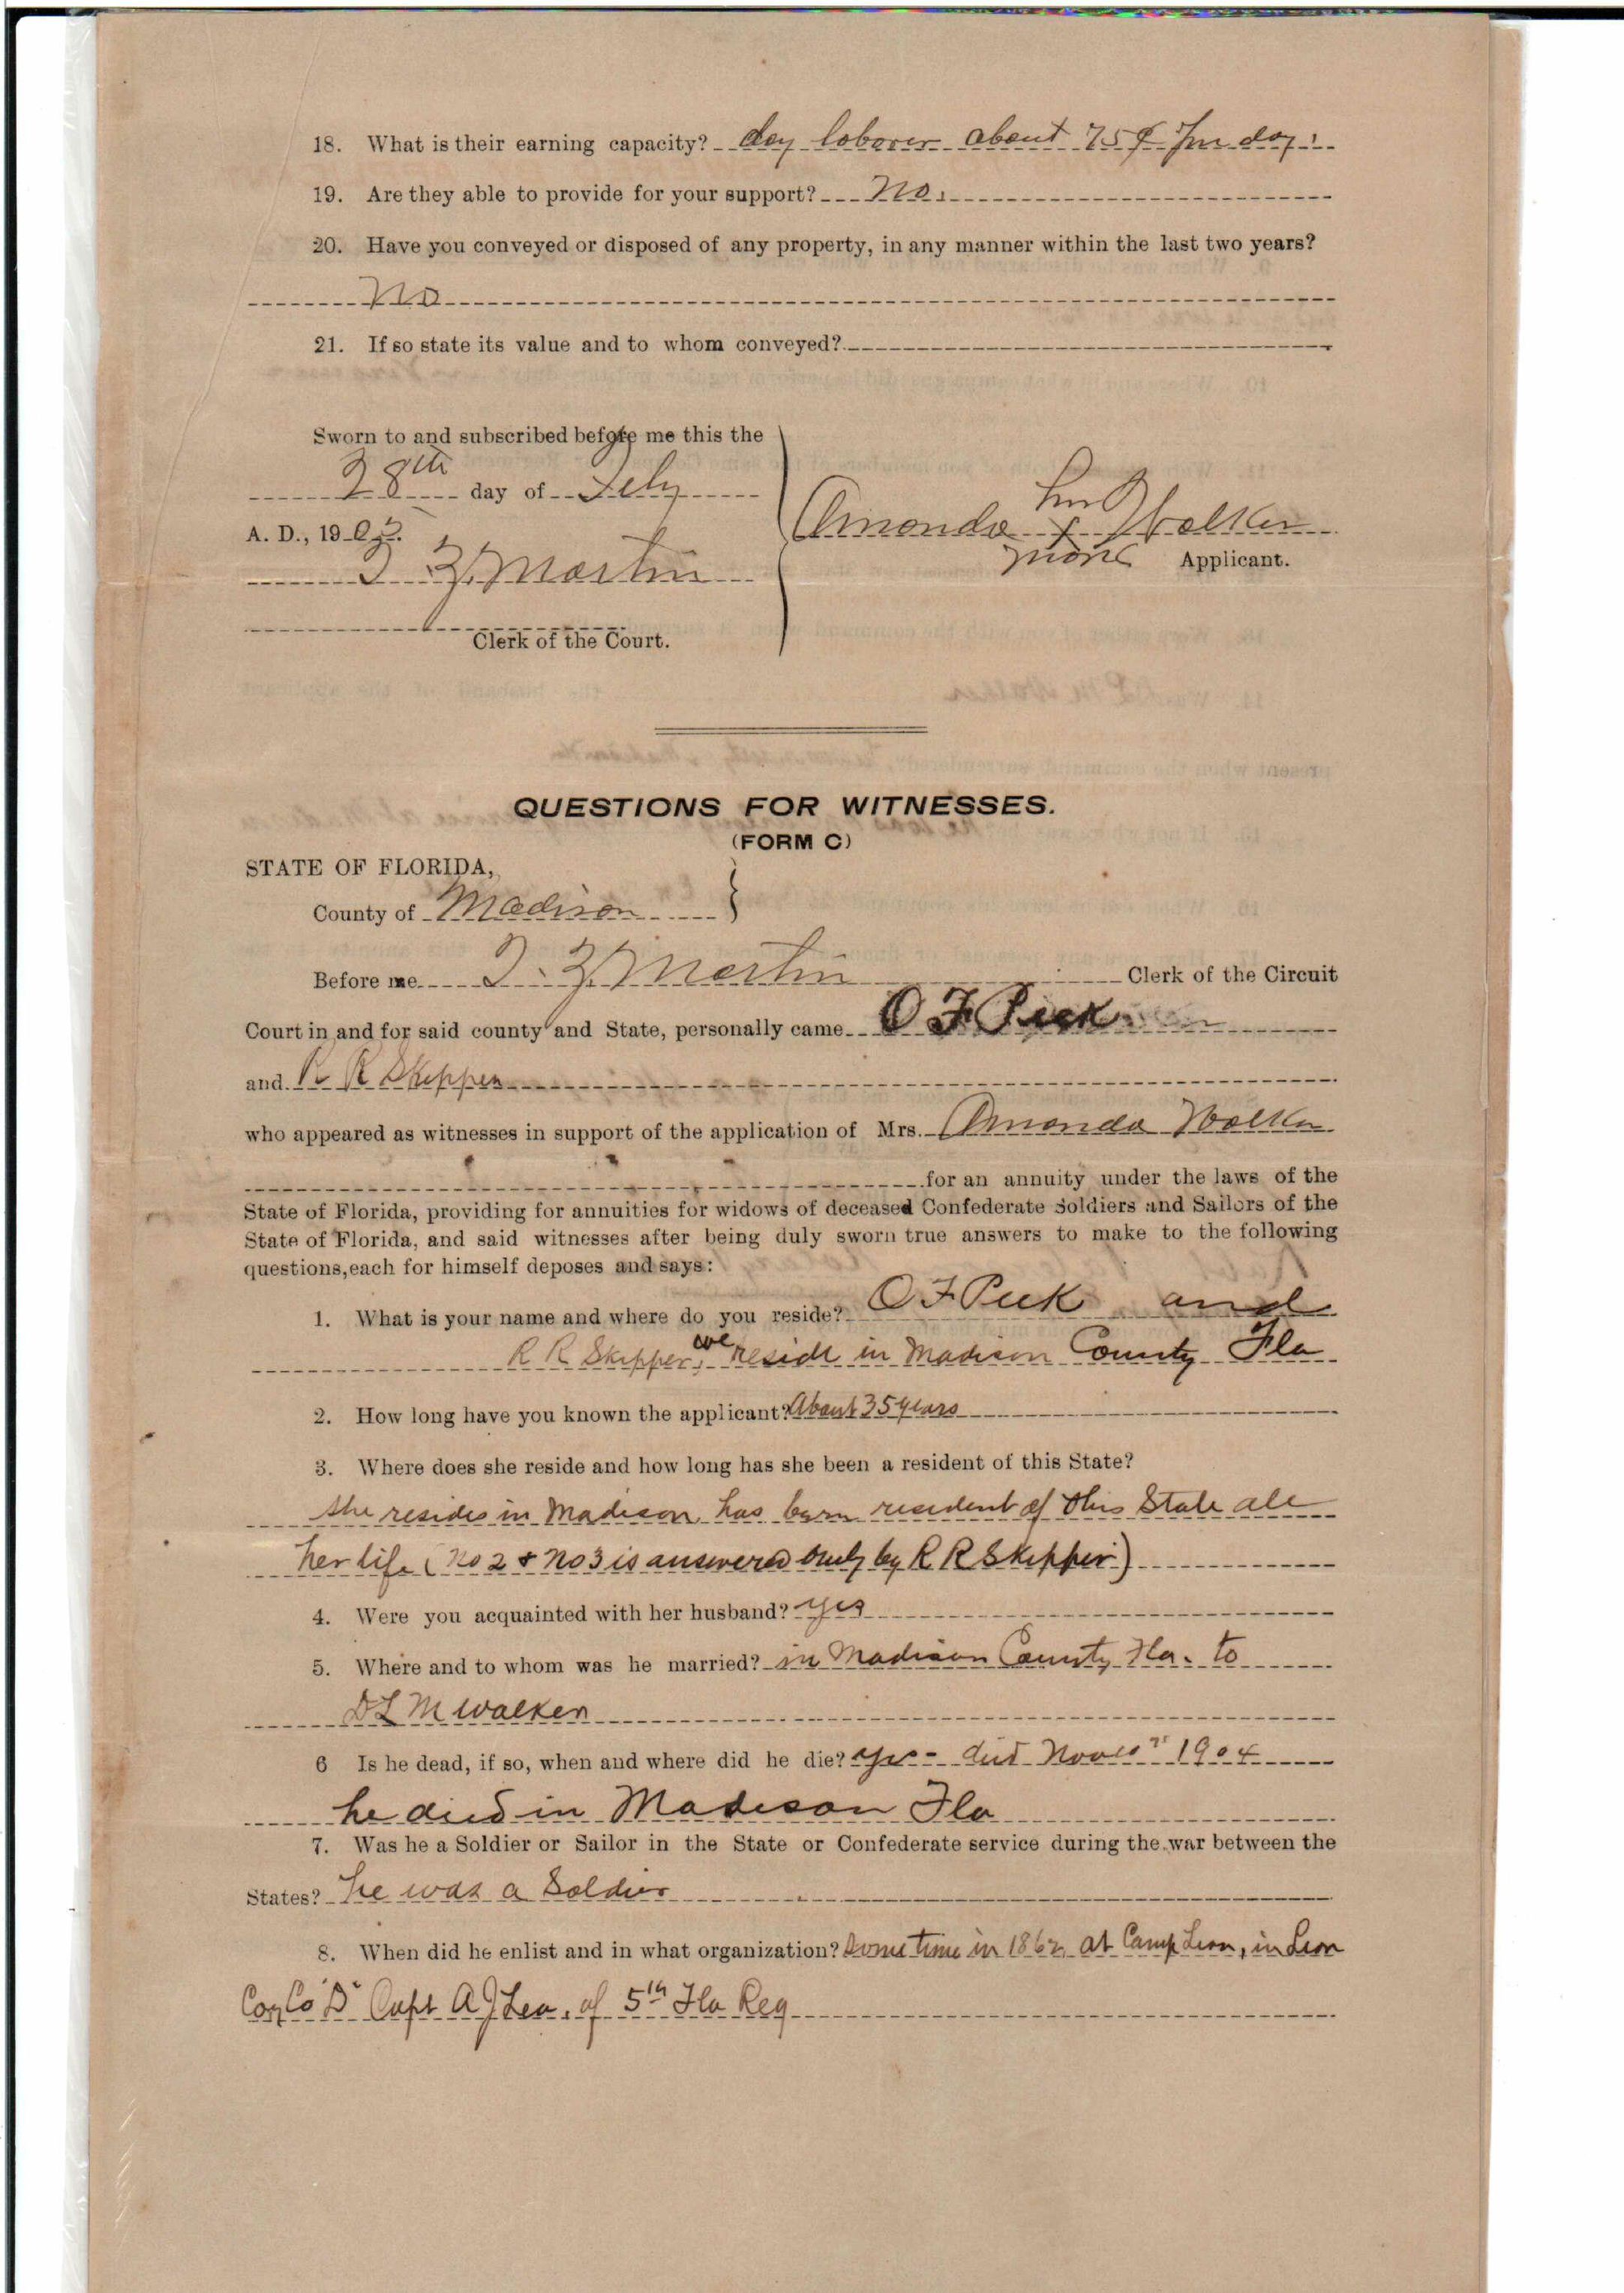 18. What is their earning capacity? day laborer about 75¢ per day.
19. Are they able to provide for your support? No.
20. Have you conveyed or disposed of any property, in any manner within the last two years?
No
21. If so state its value and to whom conveyed?
Sworn to and subscribed before me this the
28th day of Feby
A. D., 1905.
Martin
Clerk of the Court.
her
Amanda x Walker
mark Applicant.
QUESTIONS FOR WITNESSES.
(FORM C)
STATE OF FLORIDA,
County of Madison
Before me Martin Clerk of the Circuit
Court in and for said county and State, personally came O F Peek
and R R Skipper
who appeared as witnesses in support of the application of Mrs. Amanda Walker
for an annuity under the laws of the
State of Florida, providing for annuities for widows of deceased Confederate Soldiers and Sailors of the
State of Florida, and said witnesses after being duly sworn true answers to make to the following
questions, each for himself deposes and says:
1. What is your name and where do you reside? O F Peek and
R R Skipper, we reside in Madison County Fla
2. How long have you known the applicant? About 35 years
3. Where does she reside and how long has she been a resident of this State?
she resides in Madison has been resident of this State all
her life (No 2 & No 3 is answered only by R R Skipper)
4. Were you acquainted with her husband? yes
5. Where and to whom was he married? in Madison County Fla. to
D L M Walker
6 Is he dead, if so, when and where did he die? yes - died 1904
he died in Madison Fla
7. Was he a Soldier or Sailor in the State or Confederate service during the war between the
States? he was a Soldier
8. When did he enlist and in what organization? Some time in 1862 at Camp Leon, in Leon
Co, Co "D" Capt A J Lea, of 5th Fla Reg